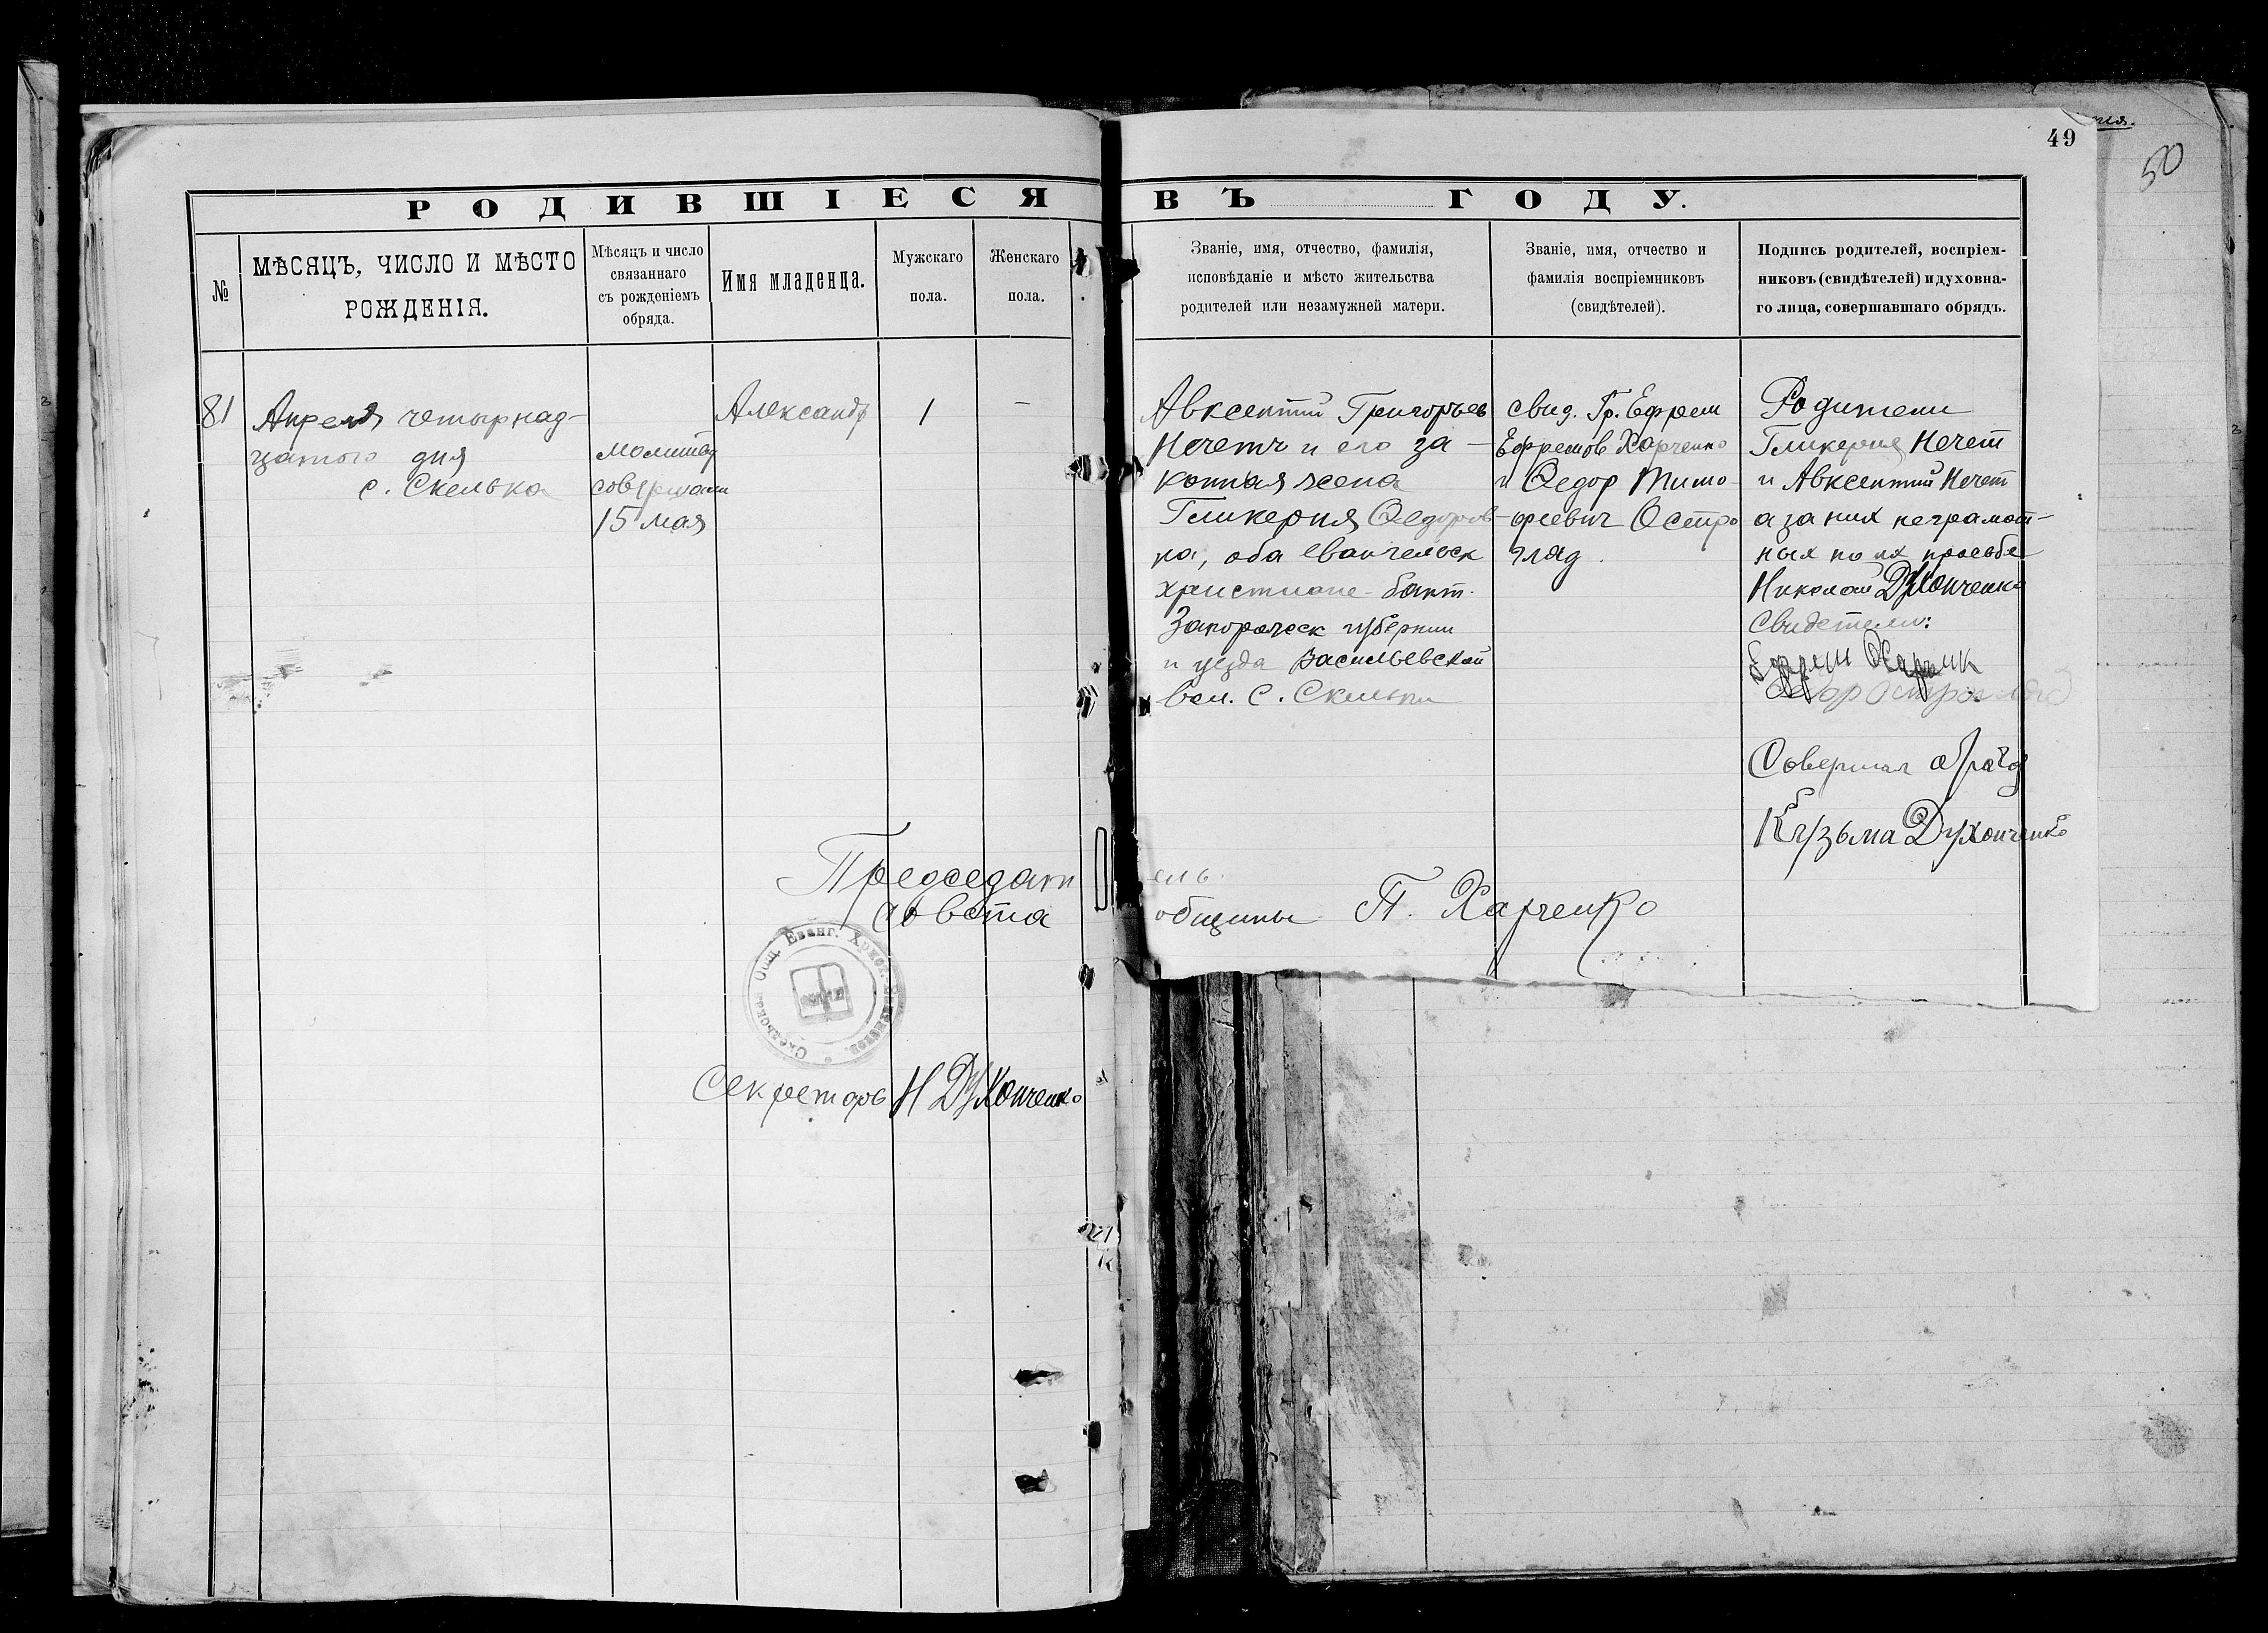 49
50
РОДИВШІЕСЯ ВЪ ГОДУ.
№
МѢСЯЦЪ, ЧИСЛО И МѢСТО
РОЖДЕНІЯ.
Мѣсяцъ и число
связаннаго
съ рожденіемъ
обряда.
Имя младенца.
Мужскаго
пола.
Женскаго
пола.
Званіе, имя, отчество, фамилія,
исповѣданіе и мѣсто жительства
родителей или незамужней матери.
Званіе, имя, отчество и
фамилія воспріемниковъ
(свидѣтелей).
Подпись родителей, воспріем-
никовъ (свидѣтелей) и духовна-
го лица, совершавшаго обрядъ.
81
Апреля четырнад-
цатого дня
с. Скелька
молитва
совершен
15 мая
Александр
1
—
Авксентий Григорьев
Нечет и его за-
конная жена
Гликерия Федоров-
на, оба евангельск
христиане - бапт.
Запорожск губернии
и уезда Васильевской
вол. с. Скельки
свид. Гр. Ефрем
Ефремов Харченко
и Федор Тимо-
феевич Остро
глад.
Родители
Гликерия Нечет
и Авксентий Нечет
а за них неграмот-
ных по их просьбе
Николай Духонченко
Свидетели:
Ефрем
Федор Остроглад
Совершал обряд
Кузьма Духонченко
Председатель
совета общины П. Харченко
Общ. Еванг. Христ.
Секретарь Н Духонченко